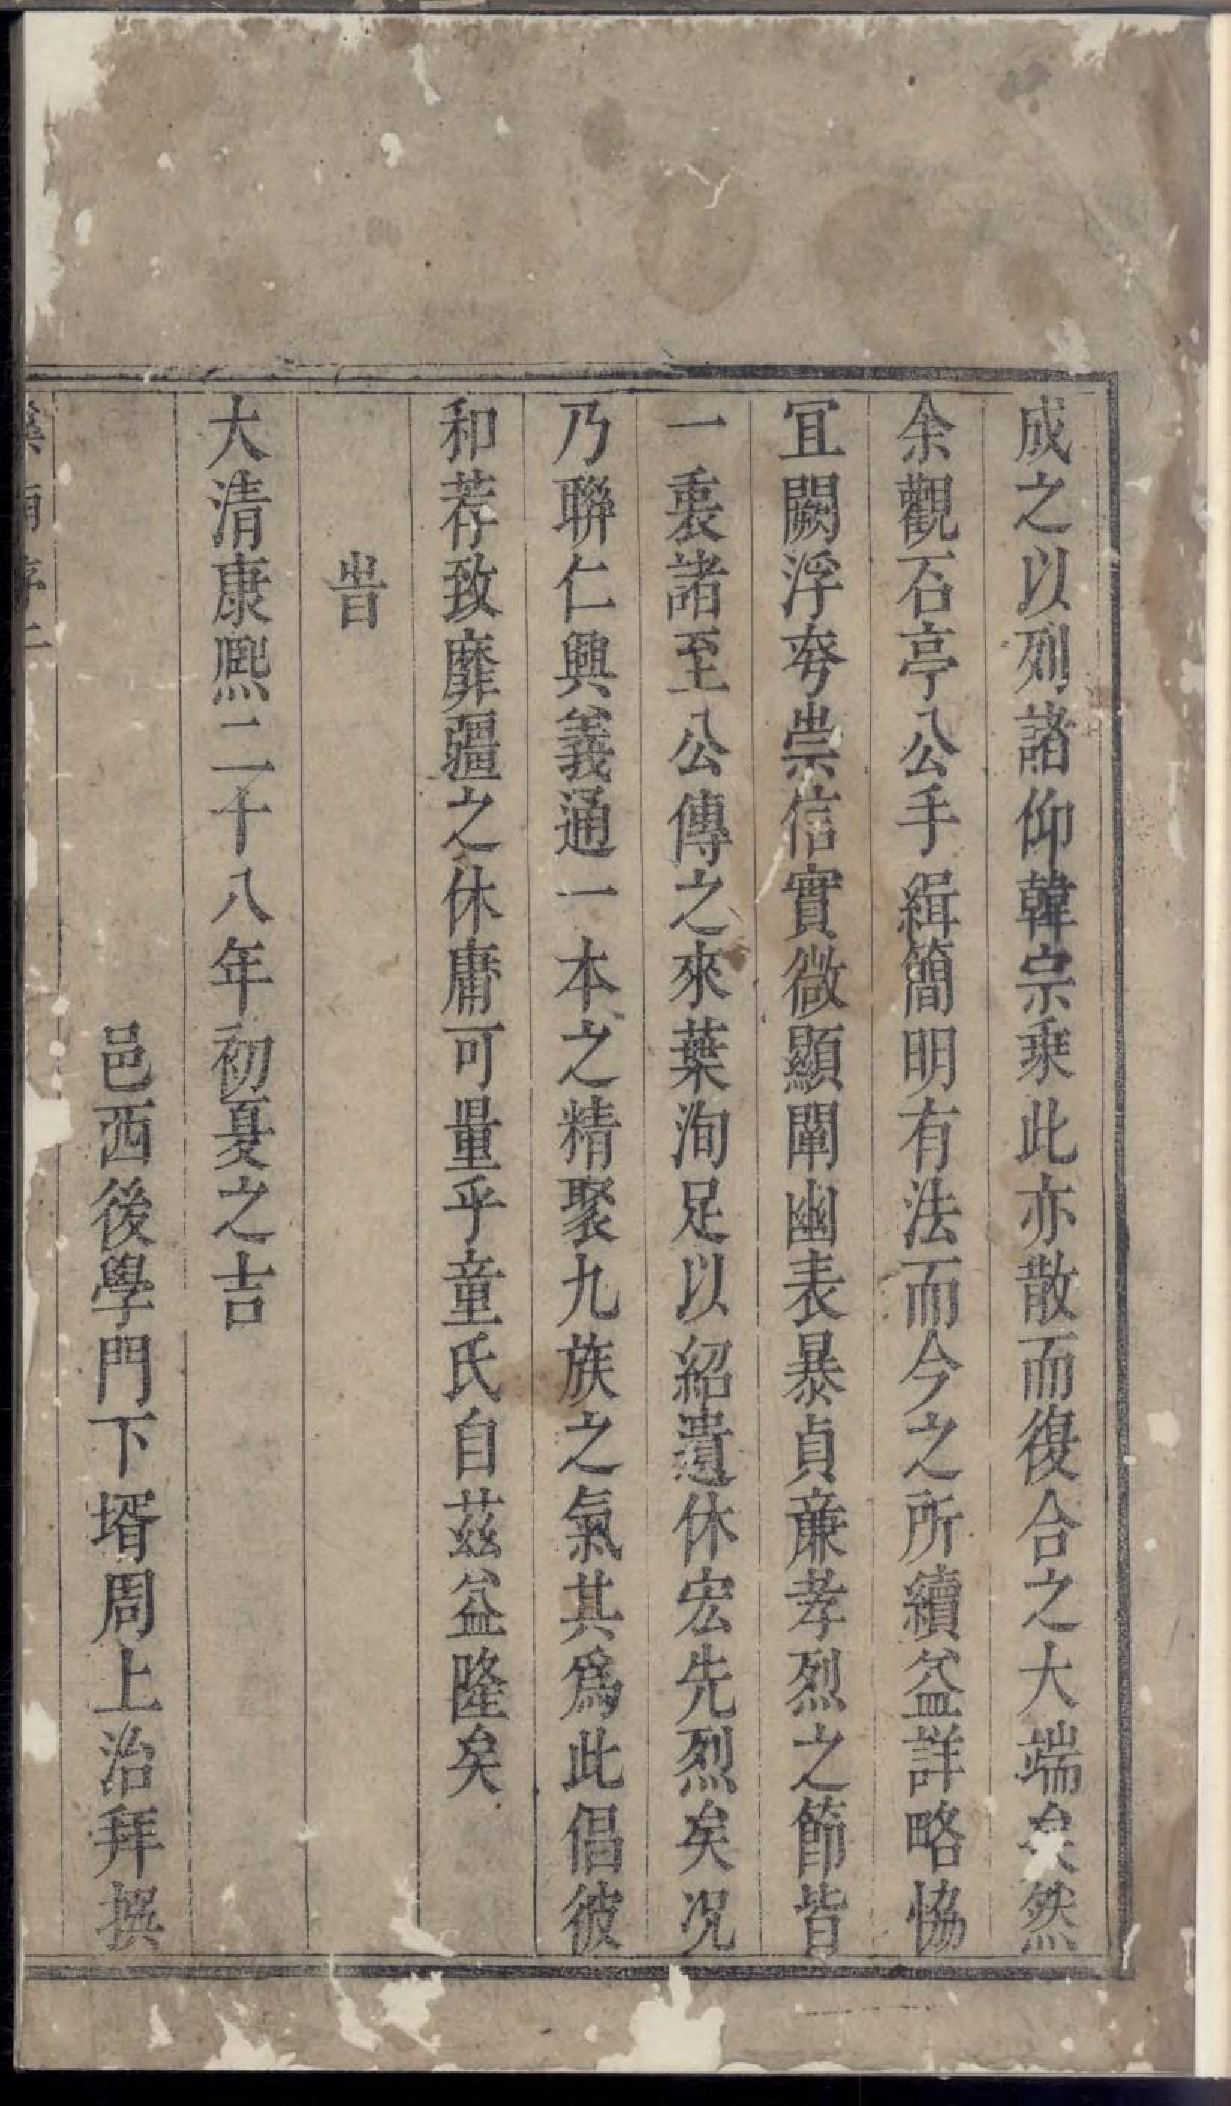 成之以列諸仰韓宗乗此亦散而復合之大端矣然
余觀石亭公手緝簡明有法而今之所續益詳略恊
冝闕浮夸崇信實微顯闡幽表暴貞亷孝烈之節皆
一裏諸至公傳之來葉洵足以紹遺休宏先烈矣况
乃聯仁興義通一本之精聚九族之氣其爲此倡彼
和荐致靡疆之休庸可量乎童氏自茲益隆矣
旹
大清康熈二十八年初夏之吉
邑西後學門下壻周上治拜撰